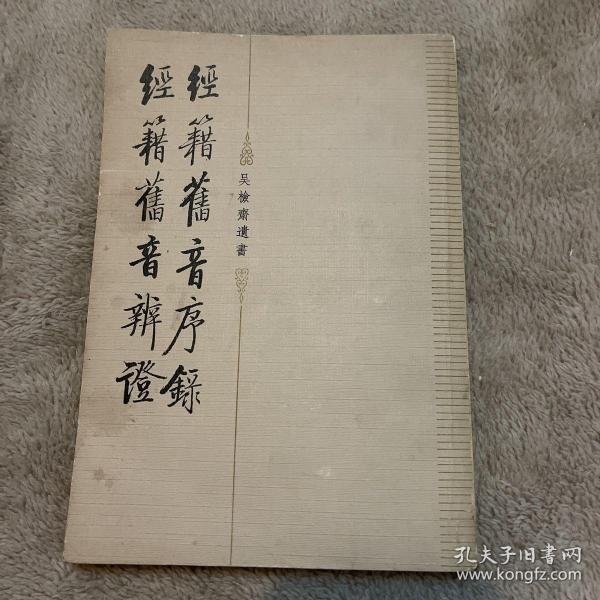 吴檢齋遺書
經籍舊音序錄
經籍舊音辨證
孔夫子旧书网
www.kongfz.com